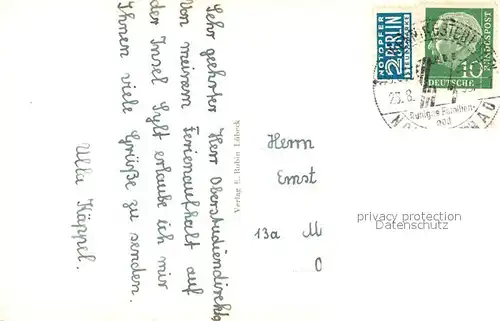 Sehr geehrter Herr Oberstudiendirektor
Von meinem Ferienaufhalt auf
der Insel Sylt erlaube ich mir
Ihnen viele Grüße zu senden.
Ulla Käppel.
Verlag E. Robin Lübeck
NOTOPFER
2 BERLIN
STEUERMARKE
DEUTSCHE
BUNDESPOST
10
23.8.
Familien-
bad
Herrn
Ernst
13a M
O
privacy protection
Datenschutz